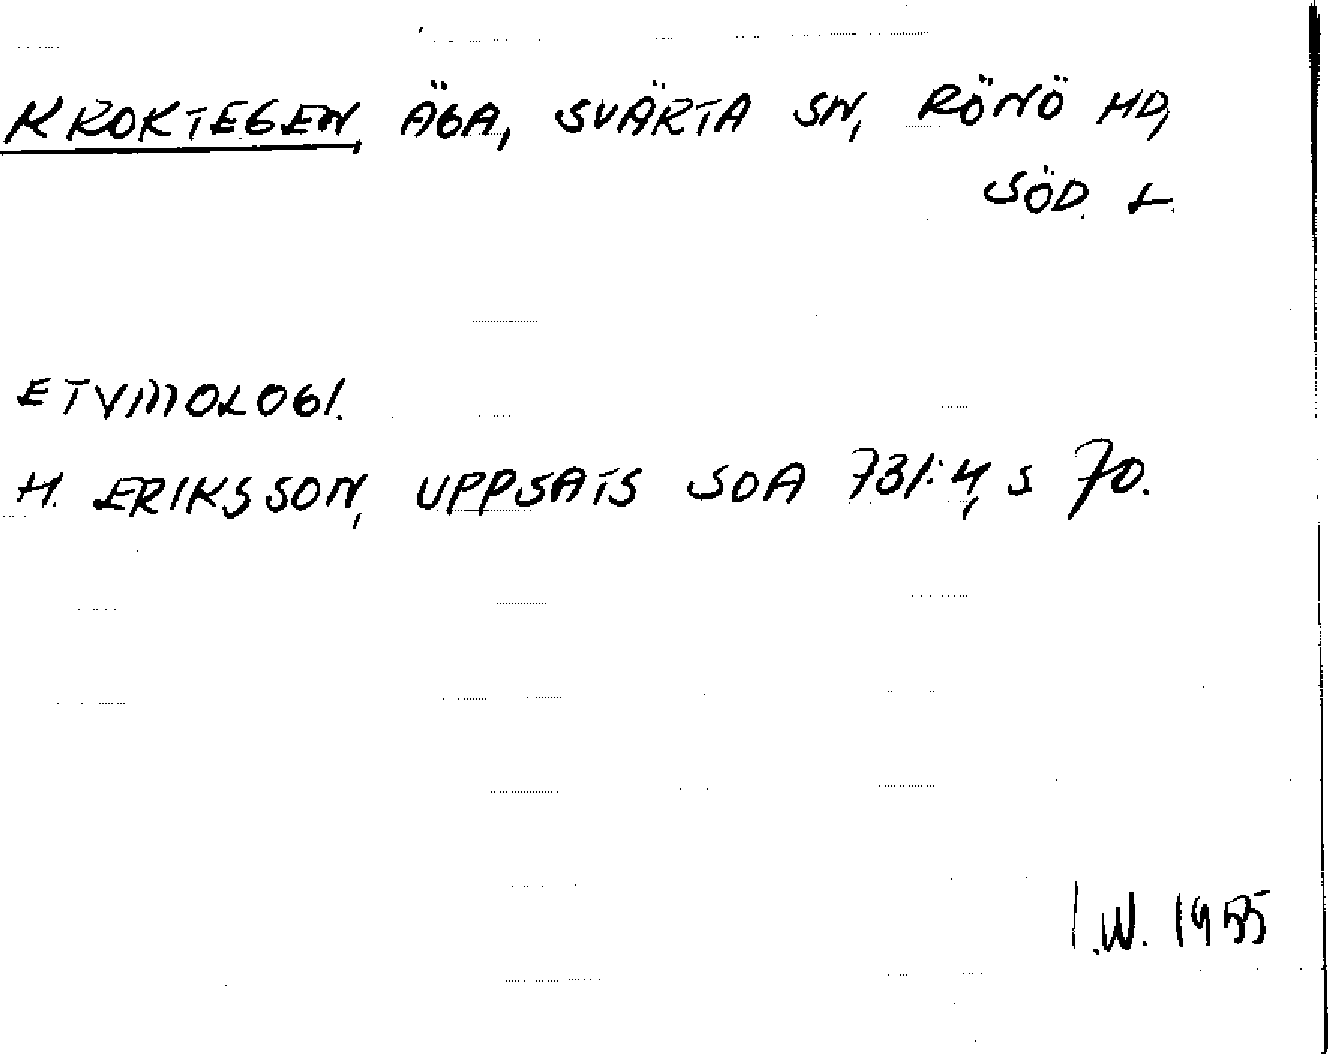 KROKTEGEN, ÄGA, SVÄRTA SN, RÖNÖ HD,
SÖD. L.
ETYMOLOGI.
H. ERIKSSON, UPPSATS SOA 731:4, S 70.
I.W. 1955